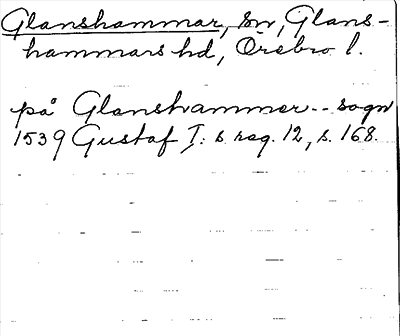 Glanshammar, sn, Glans-
hammars hd, Örebro l.
på Glanshammer - - sogn
1539 Gustaf I: s reg. 12, s. 168.